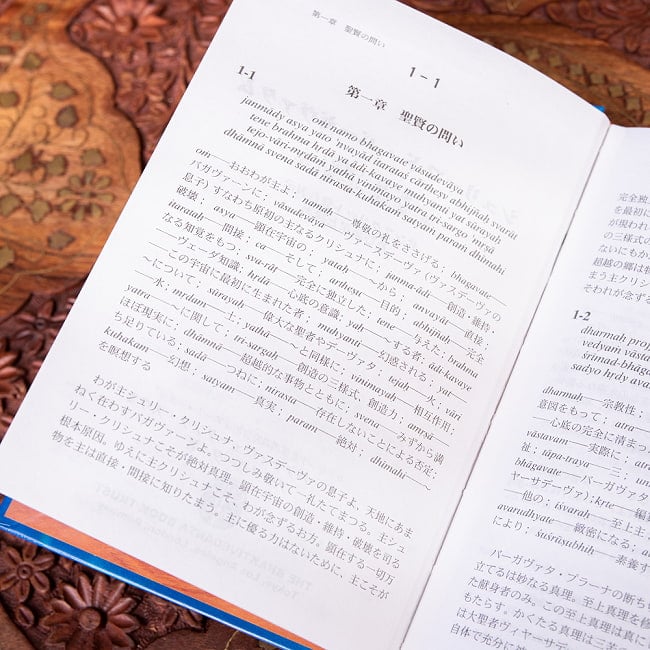 第一章 聖賢の問い
1－1
1-1
第一章 聖賢の問い
oṁ namo bhagavate vāsudevāya
janmādy asya yato 'nvayād itarataś cārtheṣv abhijñaḥ svarāṭ
tene brahma hṛdā ya ādi-kavaye muhyanti yat sūrayaḥ
tejo-vāri-mṛdāṁ yathā vinimayo yatra tri-sargo 'mṛṣā
dhāmnā svena sadā nirasta-kuhakaṁ satyaṁ paraṁ dhīmahi
oṁ──おおわが主よ; namaḥ──尊敬の礼をささげる; bhagavate──
バガヴァーンに; vāsudevāya──ヴァースデーヴァ（ヴァスデーヴァの
息子）すなわち原初の主なるクリシュナに; janma-ādi──創造・維持・
破壊; asya──顕在宇宙の; yataḥ──～から; anvayāt──直接;
itarataḥ──間接; ca──そして; artheṣu──目的; abhijñaḥ──完全
なる知覚をもつ; sva-rāṭ──完全に独立した; tene──与えた; brahma
──ヴェーダ知識; hṛdā──心底の意識; yaḥ──～する者; ādi-kavaye
──この宇宙に最初に生まれた者; muhyanti──幻惑される; yat──
～について; sūrayaḥ──偉大な聖者やデーヴァタ; tejaḥ──火; vāri
──水; mṛdām──土; yathā──～と同様に; vinimayaḥ──相互作用;
yatra──～に関して; tri-sargaḥ──創造の三様式、創造力; amṛṣā──
ほぼ現実に; dhāmnā──超越的な事物とともに; svena──みずから満
ち足りている; sadā──つねに; nirasta──存在しないことによる否定;
kuhakam──幻想; satyam──真実; param──絶対; dhīmahi──～
を瞑想する
わが主シュリー・クリシュナ、ヴァスデーヴァの息子よ、天地にあま
ねく在わすバガヴァーンよ、つつしみ敬いて一礼たてまつる。主シュ
リー・クリシュナこそが絶対真理。顕在宇宙の創造・維持・破壊を司る
根本原因。ゆえに主クリシュナこそ、わが念ずるお方。顕在する一切万
物を主は直接・間接に知りたまう。主に優る力はないために、主こそが
完全独
を最初に
が現われ
の三様式の
ないにもか
超越の郷は物
まう主クリシ
それわが念ずる
1-2
dharmaḥ proj
vedyaṁ vāsta
śrīmad-bhāg
sadyo hṛdy avar
dharmaḥ──宗教性;
意図をもって; atra
──心底の完全に清まっ
vāstavam──実際に; atra
祉; tāpa-traya──三
bhāgavate──バーガヴァタ
ヤーサデーヴァ); kṛte──編
──他の; īśvaraḥ──至上主
avarudhyate──緻密になる;
により; śuśrūṣubhiḥ──素養す
バーガヴァタ・プラーナの断ち
立てるは妙なる真理。至上真理を修
た献身者のみ。この至上真理は真に
もたらす。かくたる真理は三苦の
は大聖者ヴィヤーサデー
自体で充分に